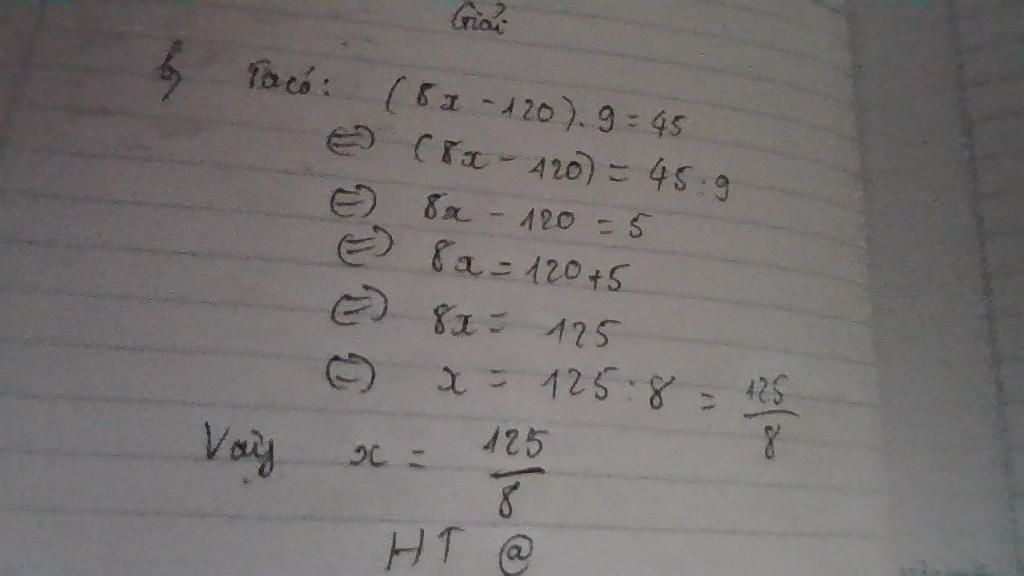 Giải
b, Ta có: (8x - 120). 9 = 45
⇔ (8x - 120) = 45 : 9
⇔ 8x - 120 = 5
⇔ 8x = 120 + 5
⇔ 8x = 125
⇔ x = 125 : 8 = 125/8
Vậy x = 125/8
HT @